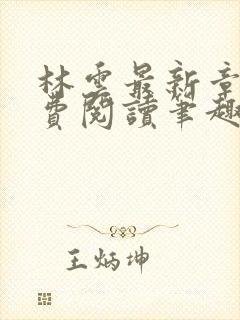 林雲最新章
費閱讀筆趣
王炳坤